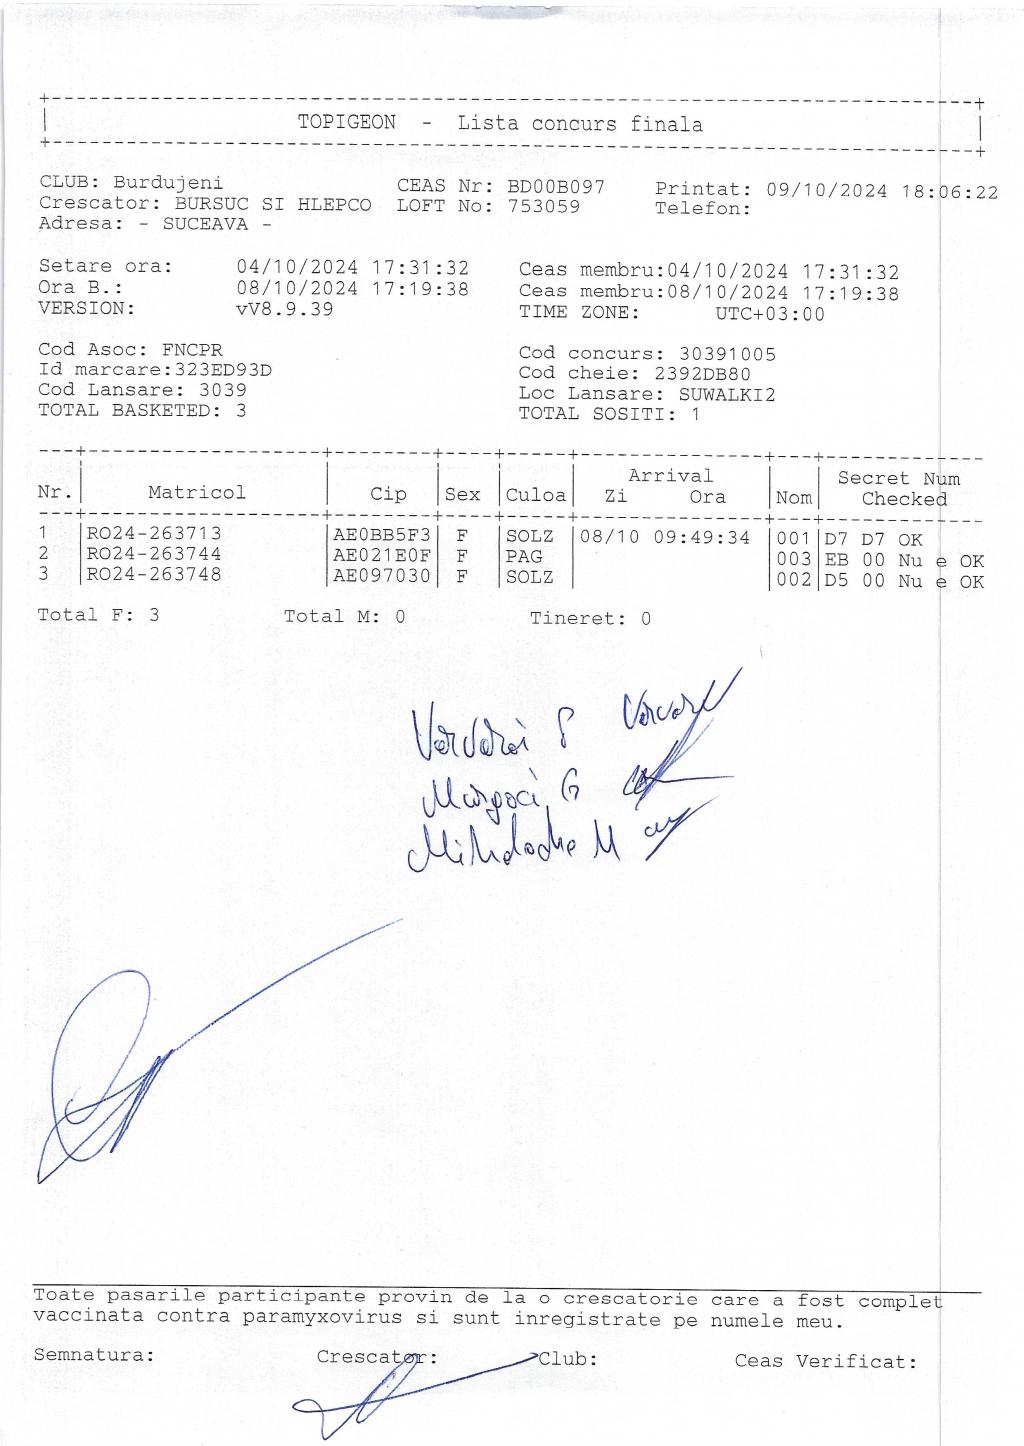 TOPIGEON - Lista concurs finala
CLUB: Burdujeni CEAS Nr: BD00B097 Printat: 09/10/2024 18:06:22
Crescator: BURSUC SI HLEPCO LOFT No: 753059 Telefon:
Adresa: - SUCEAVA -
Setare ora: 04/10/2024 17:31:32 Ceas membru:04/10/2024 17:31:32
Ora B.: 08/10/2024 17:19:38 Ceas membru:08/10/2024 17:19:38
VERSION: vV8.9.39 TIME ZONE: UTC+03:00
Cod Asoc: FNCPR Cod concurs: 30391005
Id marcare:323ED93D Cod cheie: 2392DB80
Cod Lansare: 3039 Loc Lansare: SUWALKI2
TOTAL BASKETED: 3 TOTAL SOSITI: 1
Arrival Secret Num
Nr. Matricol Cip Sex Culoa Zi Ora Nom Checked
1 RO24-263713 AE0BB5F3 F SOLZ 08/10 09:49:34 001 D7 D7 OK
2 RO24-263744 AE021E0F F PAG 003 EB 00 Nu e OK
3 RO24-263748 AE097030 F SOLZ 002 D5 00 Nu e OK
Total F: 3 Total M: 0 Tineret: 0
Toate pasarile participante provin de la o crescatorie care a fost complet
vaccinata contra paramyxovirus si sunt inregistrate pe numele meu.
Semnatura: Crescator: Club: Ceas Verificat: